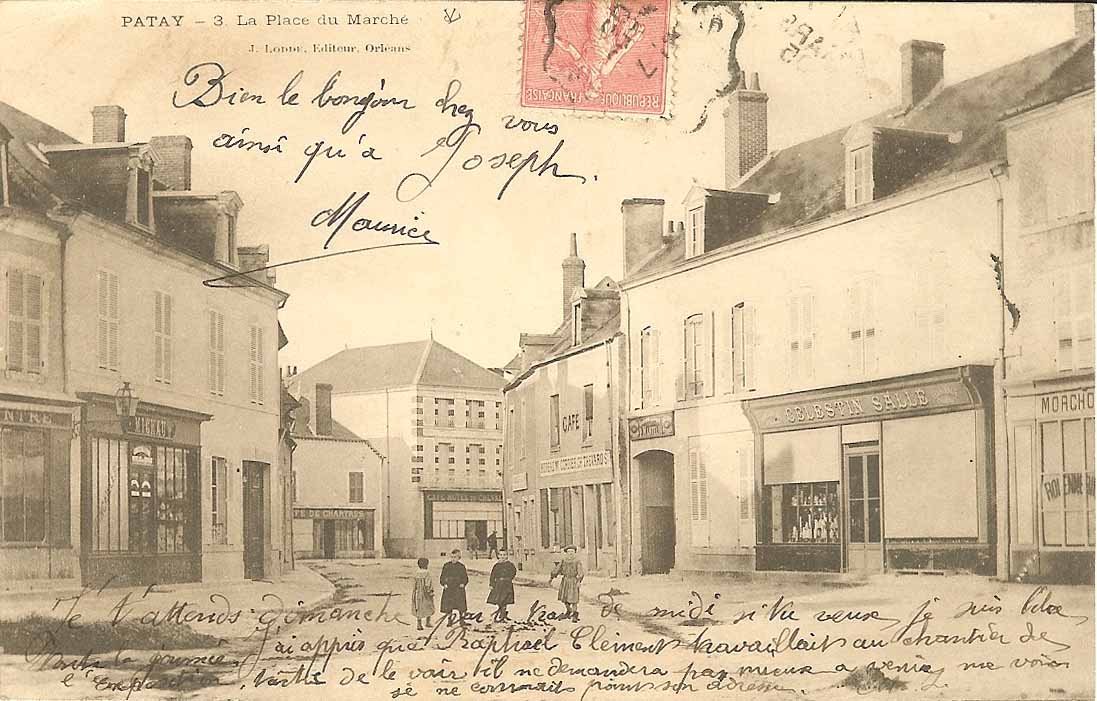 PATAY – 3. La Place du Marché
J. LODDÉ, Editeur, Orléans
REPUBLIQUE FRANÇAISE
Bien le bonjour chez vous
ainsi qu'a Joseph.
Maurice
CAFE
CELESTIN SALLE
MORCHO
CAFE HOTEL DU CHEVAL
FE DE CHARTRES
Je t'attends dimanche par le train de midi si tu veux je suis libre
toute la journée j'ai appris que Raphaël Clément travaillait au chantier de
l'exposition, tache de le voir il ne demandera pas mieux a venir me voir
je ne connais point son adresse